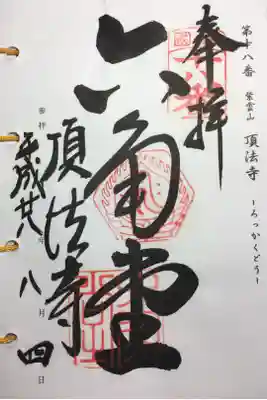 第十八番 紫雲山 頂法寺
ーろっかくどうー
奉拝
六角堂
頂法寺
参拝 平成廿八年八月四日